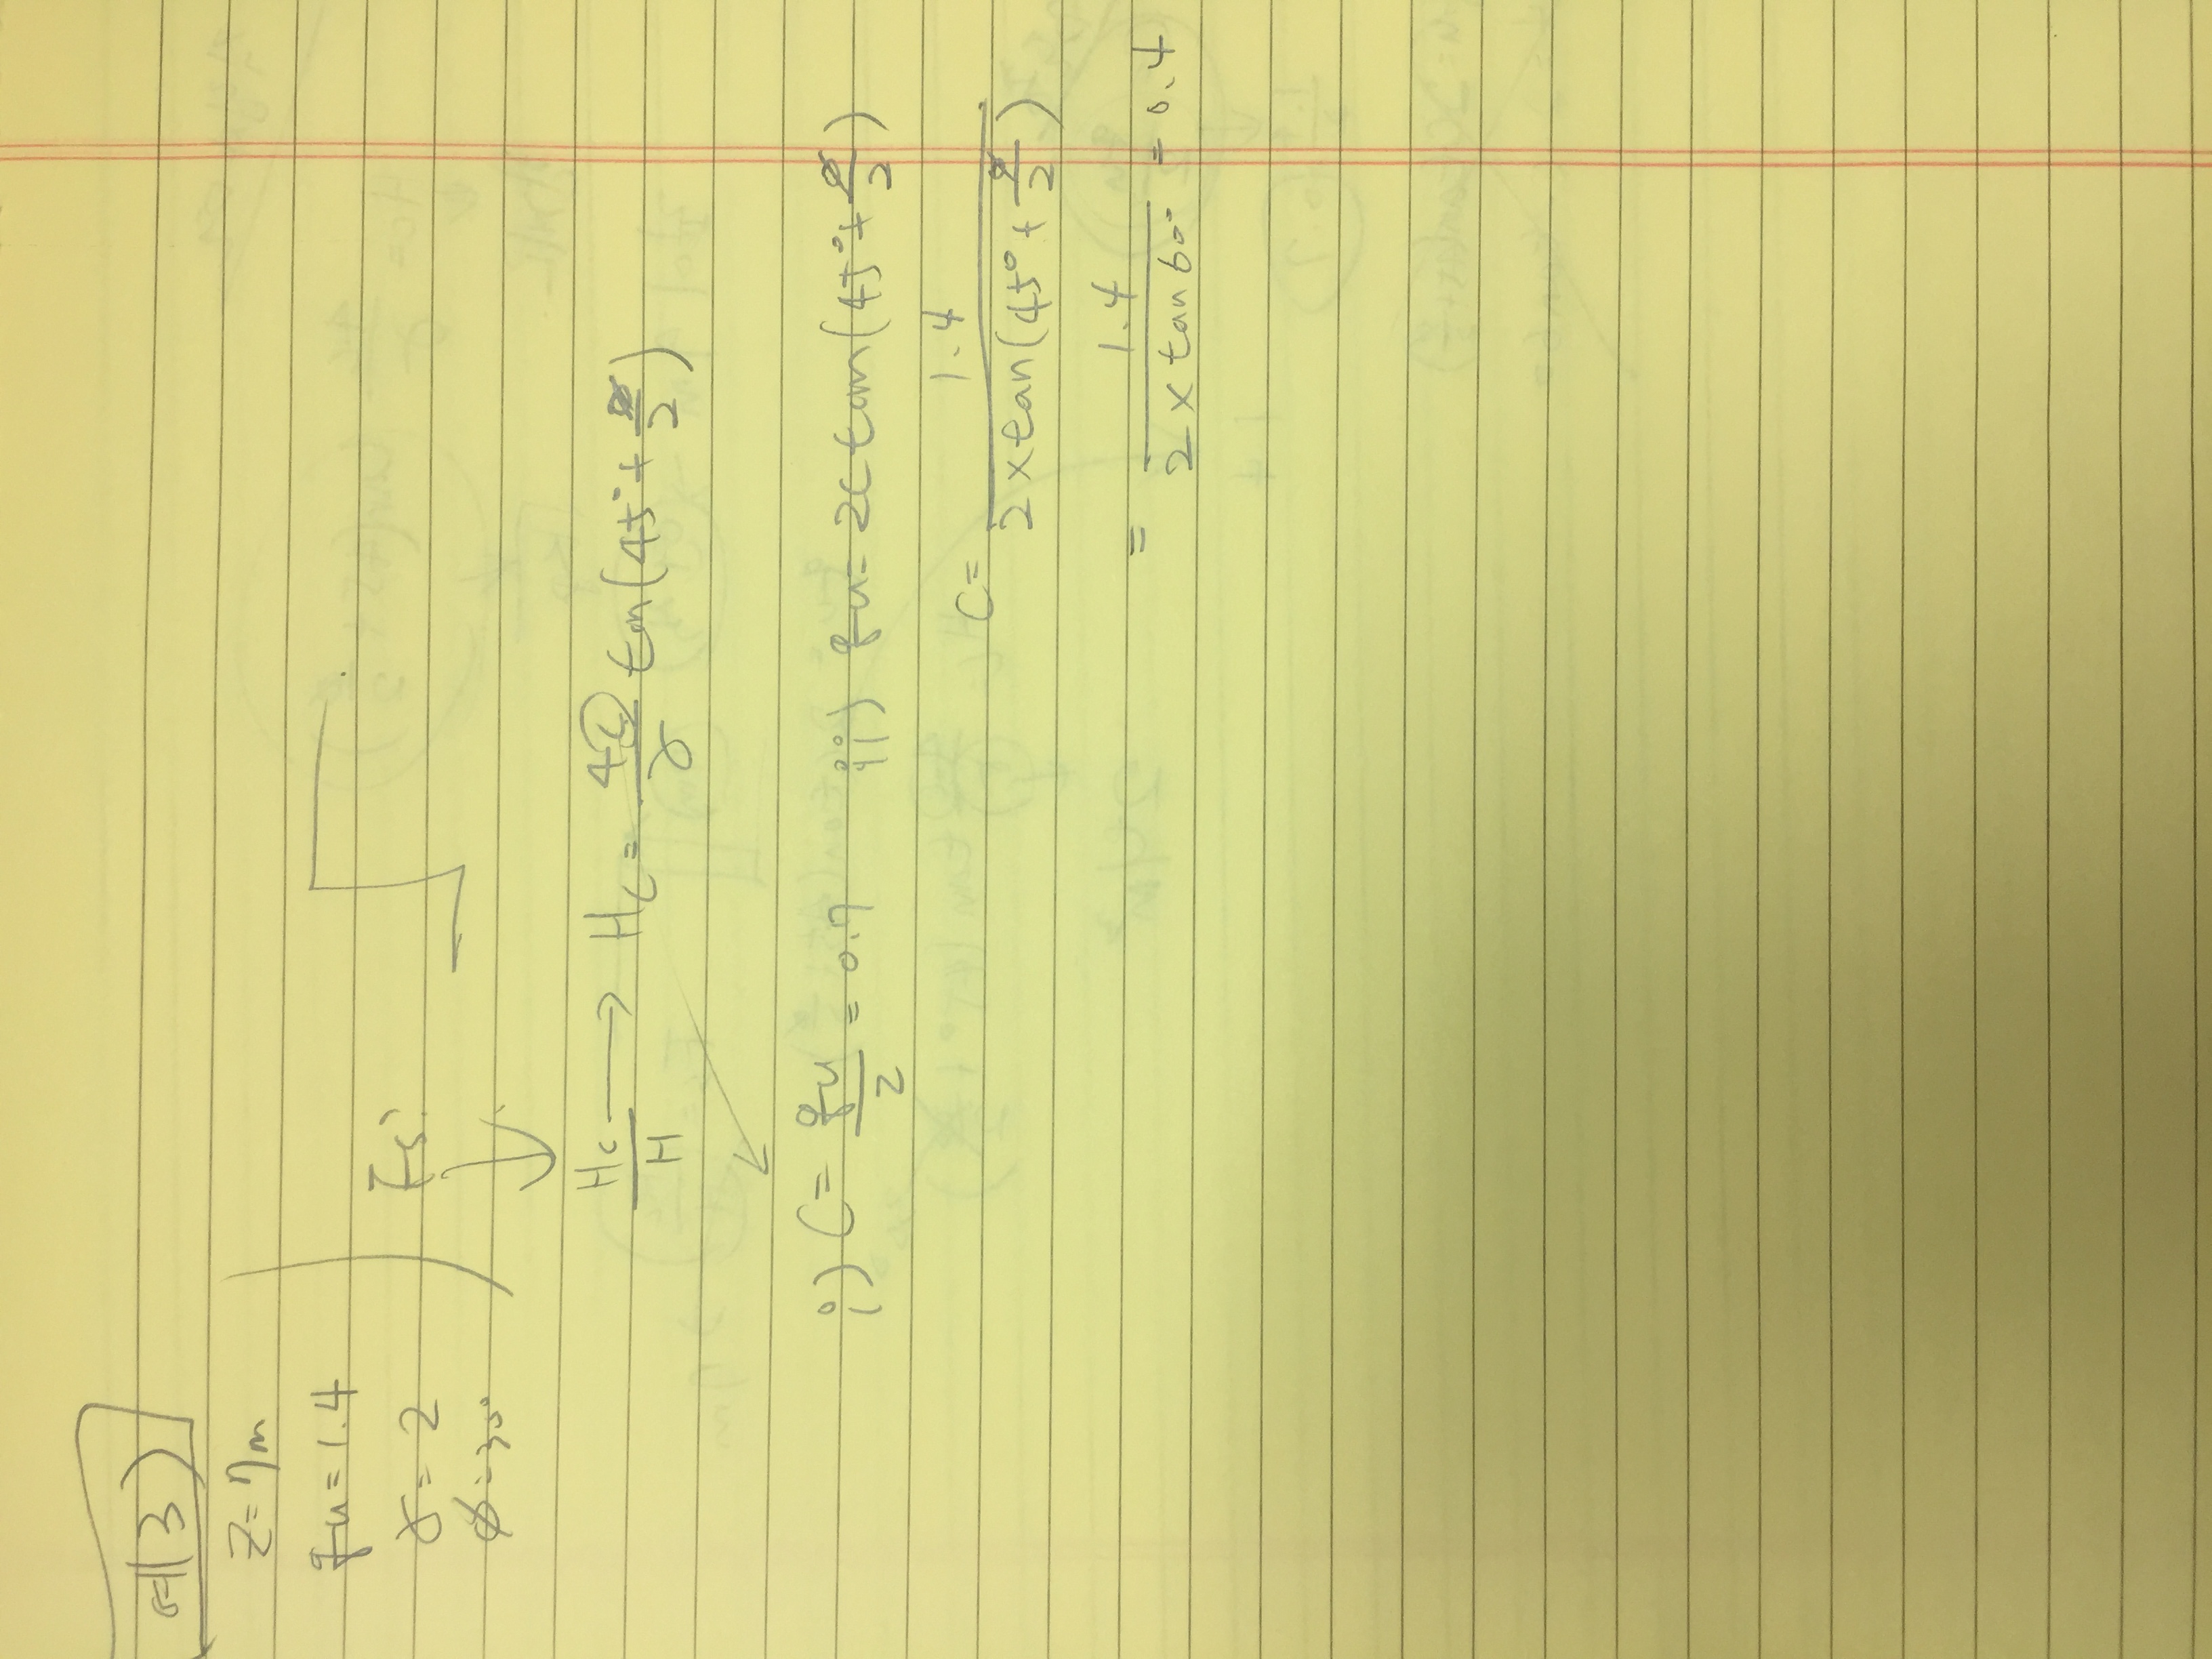 예3)
Z=7m
qu=1.4
γ=2
ϕ=30°
Fs
Hc/H → Hc = 4c/γ tan(45°+ø/2)
i) C = qu/2 = 0.7 ii) qu = 2c tan(45°+ø/2)
C = 1.4/(2×tan(45°+ø/2))
= 1.4/(2×tan60°) = 0.4